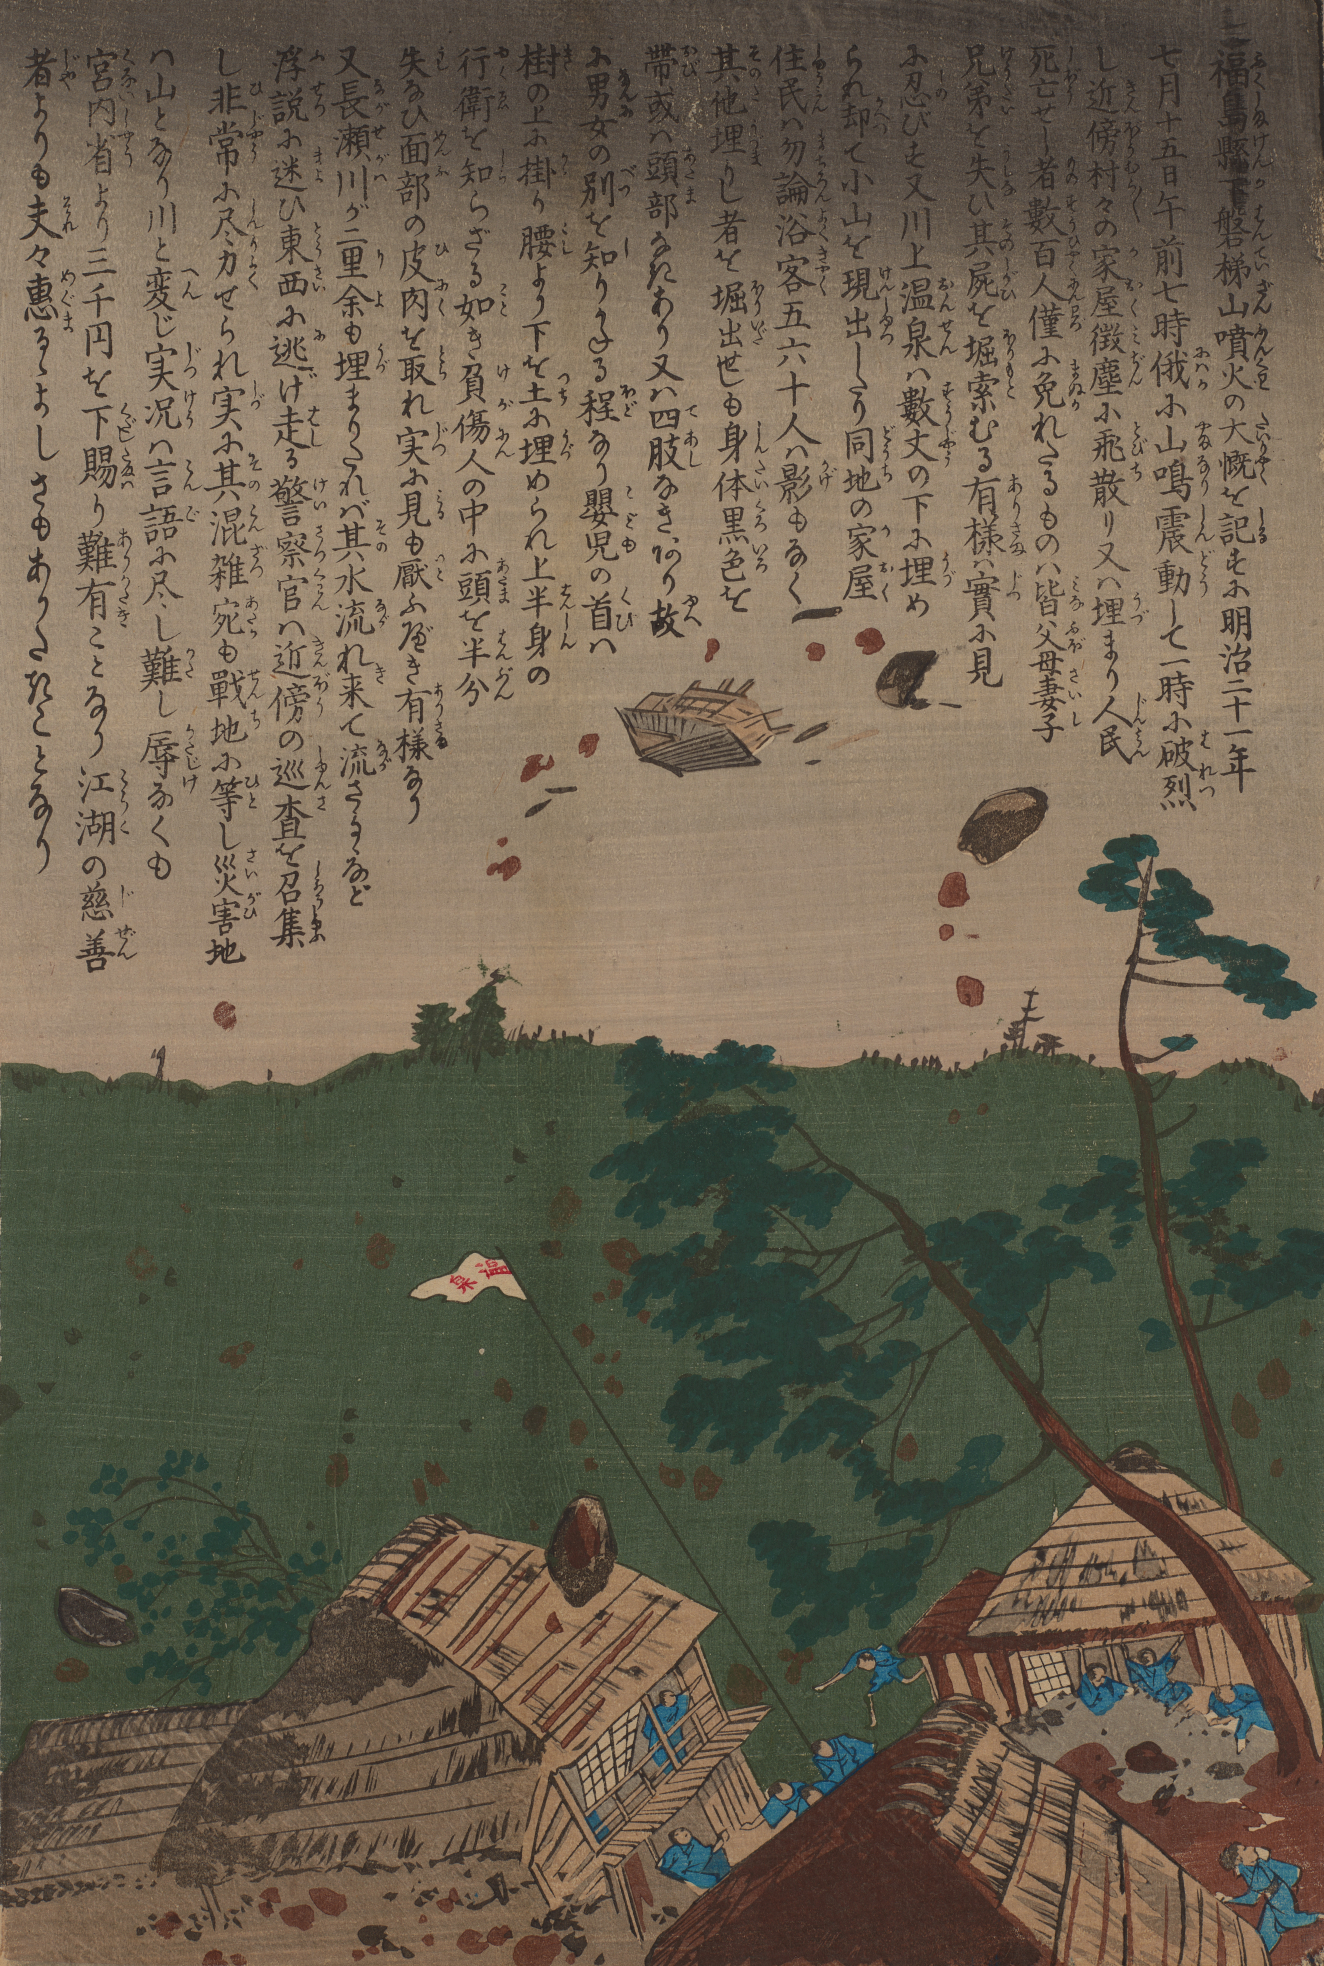 福島縣下磐梯山噴火の大慨を記すに明治二十一年
七月十五日午前七時俄に山鳴震動して一時に破烈
し近傍村々の家屋微塵に飛散り又ハ埋まり人民
死亡せし者數百人僅に免れたるものハ皆父母妻子
兄弟を失ひ其屍を堀索むる有様ハ實に見
に忍びず又川上温泉ハ數丈の下に埋め
られ却て小山を現出したり同地の家屋
住民ハ勿論浴客五六十人ハ影もなく
其他埋りし者を堀出せしも身体黒色を
帶或ハ頭部なきあり又ハ四肢なきあり故
に男女の別を知りかねる程なり嬰児の首ハ
樹の上に掛り腰より下を土に埋められ上半身の
行衛を知らざる如き負傷人の中に頭を半分
失なひ面部の皮肉を取れ実に見も厭ふべき有様なり
又長瀬川が二里余も埋まりたれバ其水流れ来て流さるゝなど
浮説に迷ひ東西に逃げ走る警察官ハ近傍の巡査を召集
し非常に尽力せられ実に其混雑宛も戰地に等し災害地
ハ山となり川と変じ実况ハ言語に尽し難し辱なくも
宮内省より三千円を下賜り難有ことなり江湖の慈善
者よりも夫々惠るゝよしさもありたきことなり
温泉